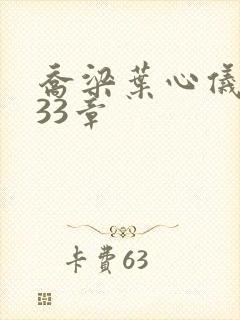 乔梁葉心儀
33章
卡费63